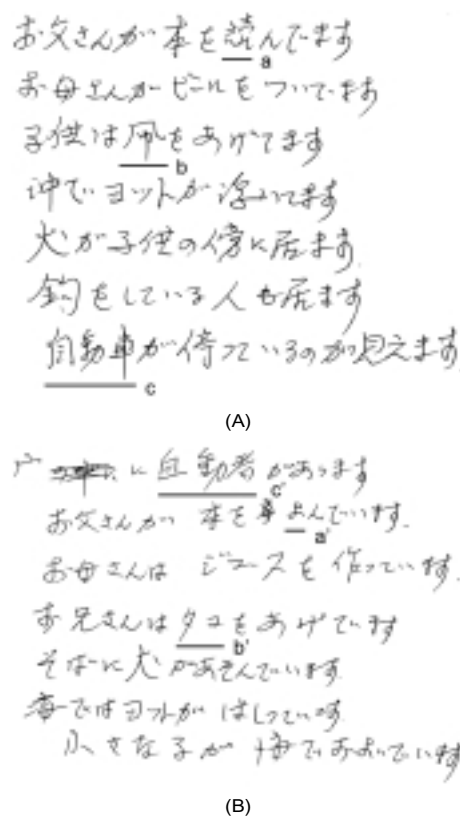 お父さんが本を読んでます
a
お母さんがビールをついでいます
子供は凧をあげてます
b
沖でヨットが浮いてます
犬が子供の傍に居ます
釣をしている人も居ます
自動車が停っているのが見えます
c
(A)
に自動者があります
c'
お父さんが 本を よんでいます.
a'
お母さんは ジュースを 作っています.
お兄さんはタコをあげています
b'
そばに犬があそんでいます.
海ではヨットが はしっています.
小さな子が でおよいでいます
(B)